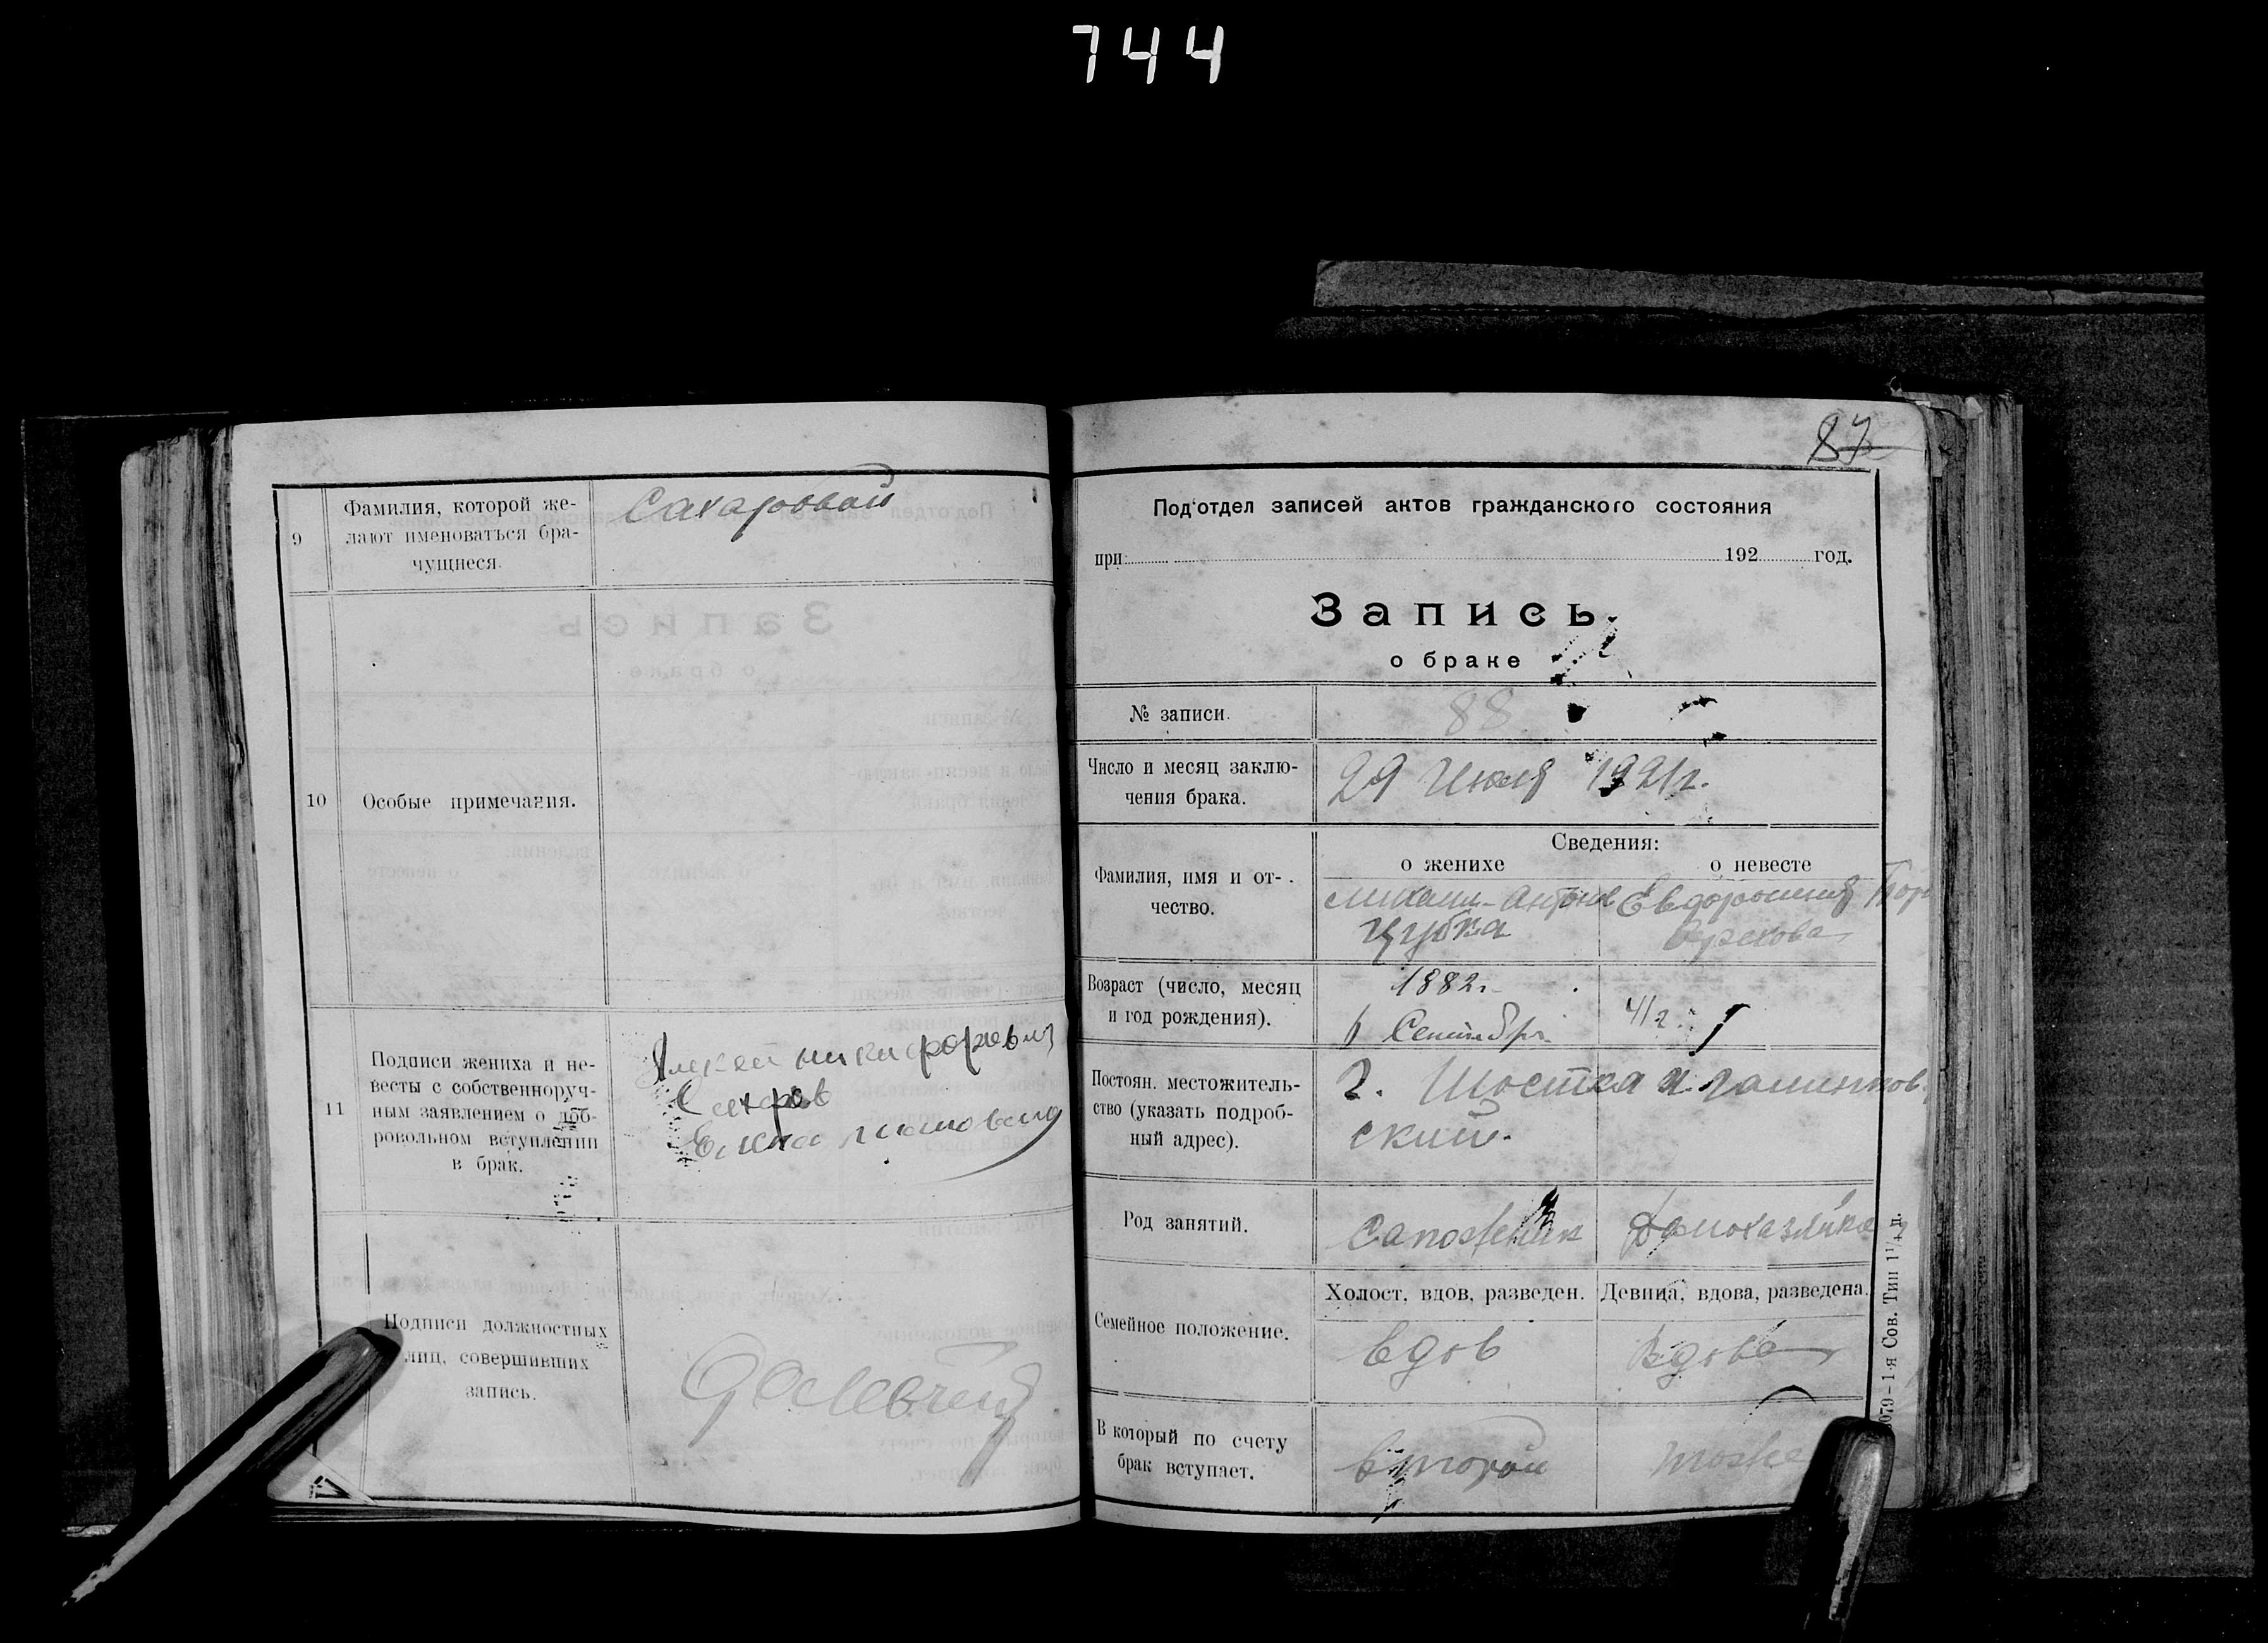 744
9
Фамилия, которой же-
лают именоваться бра-
чущиеся.
Сахаровой
10
Особые примечания.
11
Подписи жениха и не-
весты с собственноруч-
ным заявлением о доб-
ровольном вступлении
в брак.
Сахаров
Подписи должностных
лиц, совершивших
запись.
87
Под'отдел записей актов гражданского состояния
при 192 год.
Запись
о браке
№ записи. 88
Число и месяц заклю-
чения брака.
29 Июля 1921 г.
Сведения:
о женихе о невесте
Фамилия, имя и от-
чество.
Михаил Антонов
Цубка
Возраст (число, месяц
и год рождения).
1882 г.
6 Сентября
41 г.
Постоян. местожитель-
ство (указать подроб-
ный адрес).
г. Шостка
ский
Род занятий.
Сапожник
Семейное положение.
Холост, вдов, разведен. Девица, вдова, разведена.
вдов вдова
В который по счету
брак вступает.
второй тоже
079–1-я Сов. Тип 1¼ д.